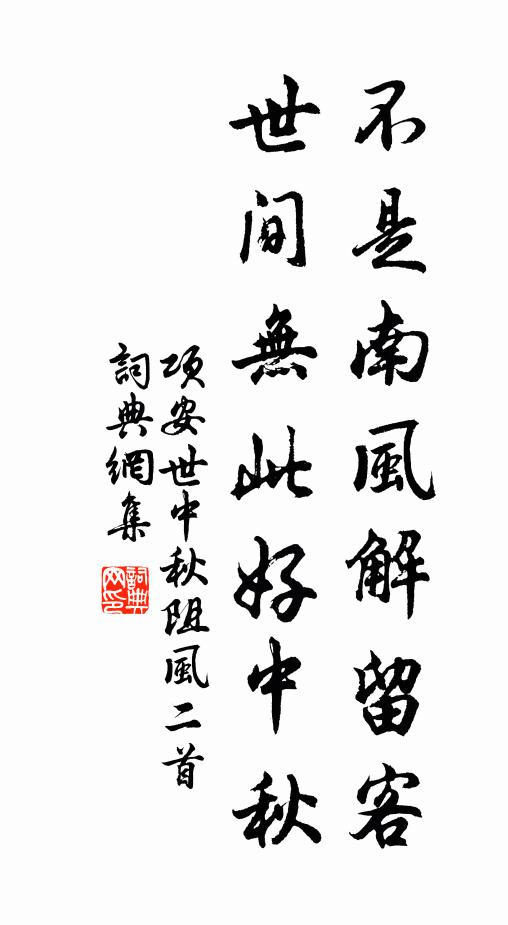 不是南風解留客
世間無此好中秋
項安世中秋阻風二首
詞典網集
詞典網印